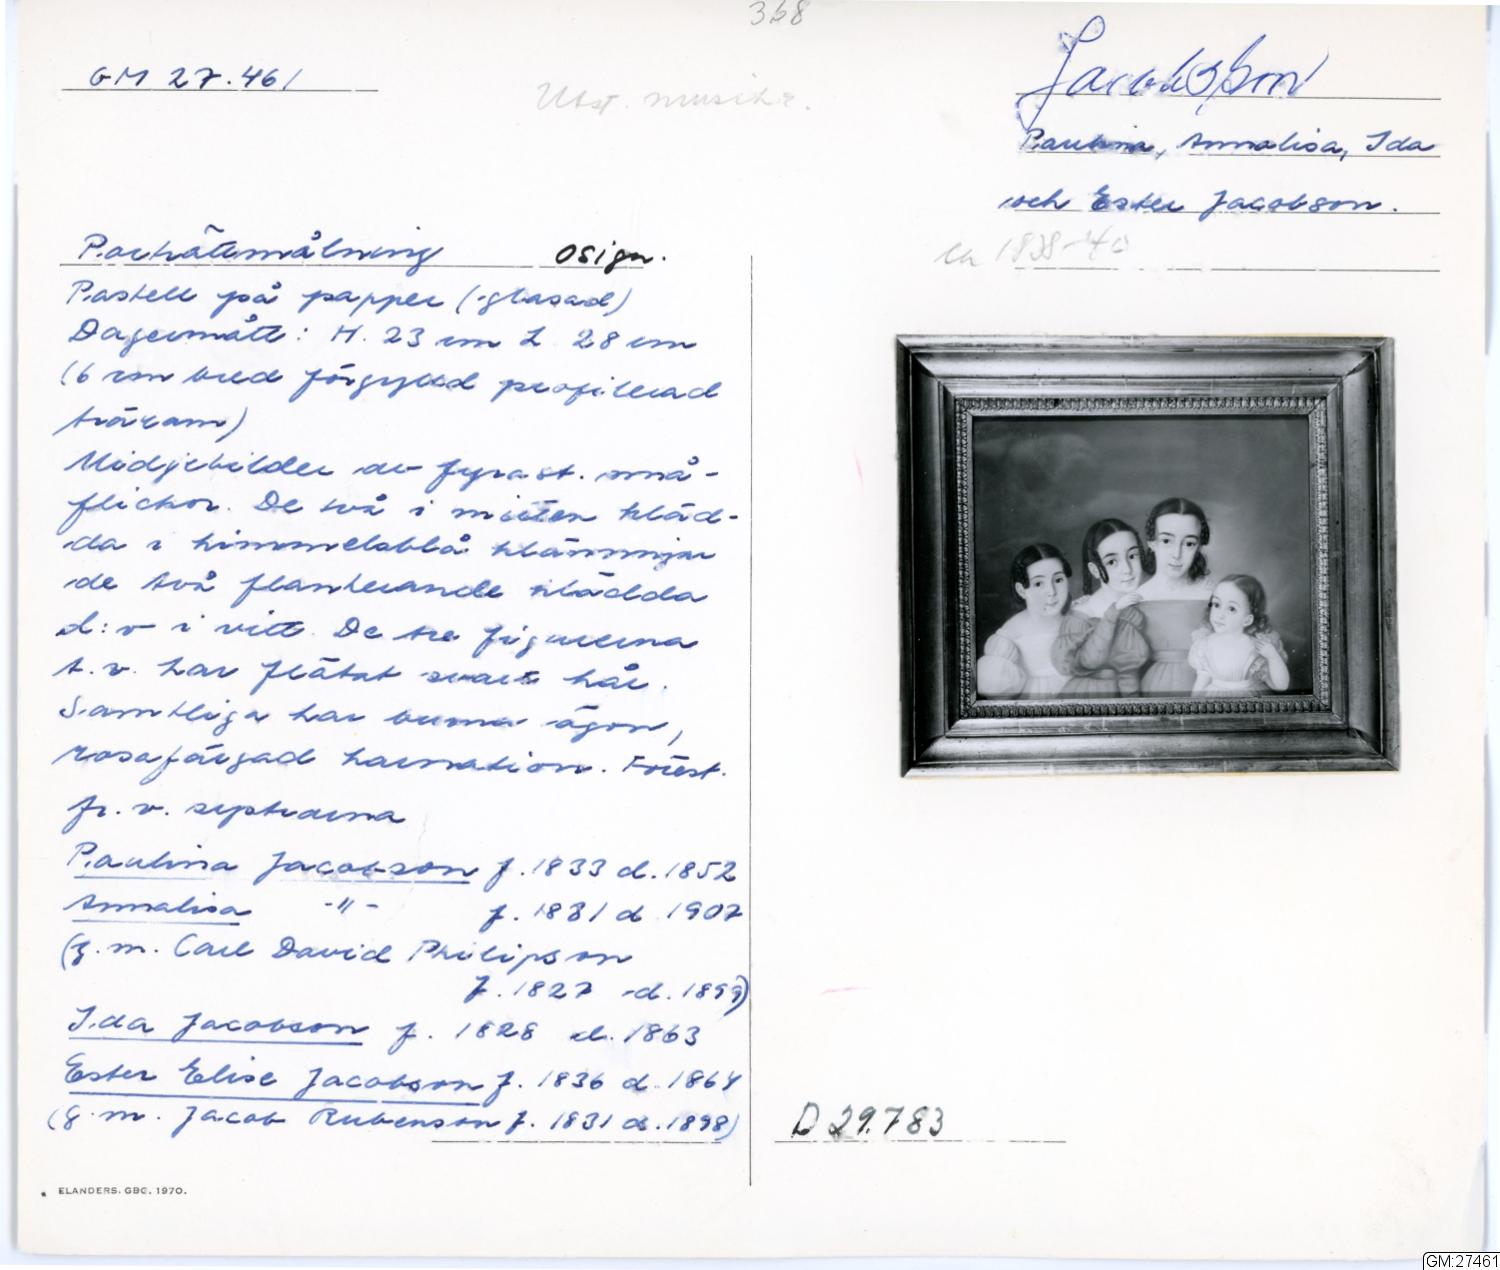 368
GM 27.461
Utst. musik.
Jacobson
Paulina, Annalisa, Ida
och Ester Jacobson.
ca 1838-40
Porträttmålning osign.
Pastell på papper (glasad)
Dagermått: H. 23 cm L 28 cm
(6 cm bred förgylld profilerad
träram)
Midjebilder av fyra st. små-
flickor. De två i mitten kläd-
da i himmelsblå klänningar
de två flankerande klädda
d:o i vitt. De tre figurerna
t.v. har flätat svart hår.
Samtliga har bruna ögon,
rosafärgad karnation. Förest.
fr. v. systrarna
Paulina Jacobson f. 1833 d. 1852
Annalisa -"- f. 1831 d. 1907
(g. m. Carl David Philipson
f. 1827 d. 1899)
Ida Jacobson f. 1828 d. 1863
Ester Elise Jacobson f. 1836 d. 1864
(g. m. Jacob Rubenson f. 1831 d. 1898)
D 29.783
ELANDERS. GBG. 1970.
GM:27461